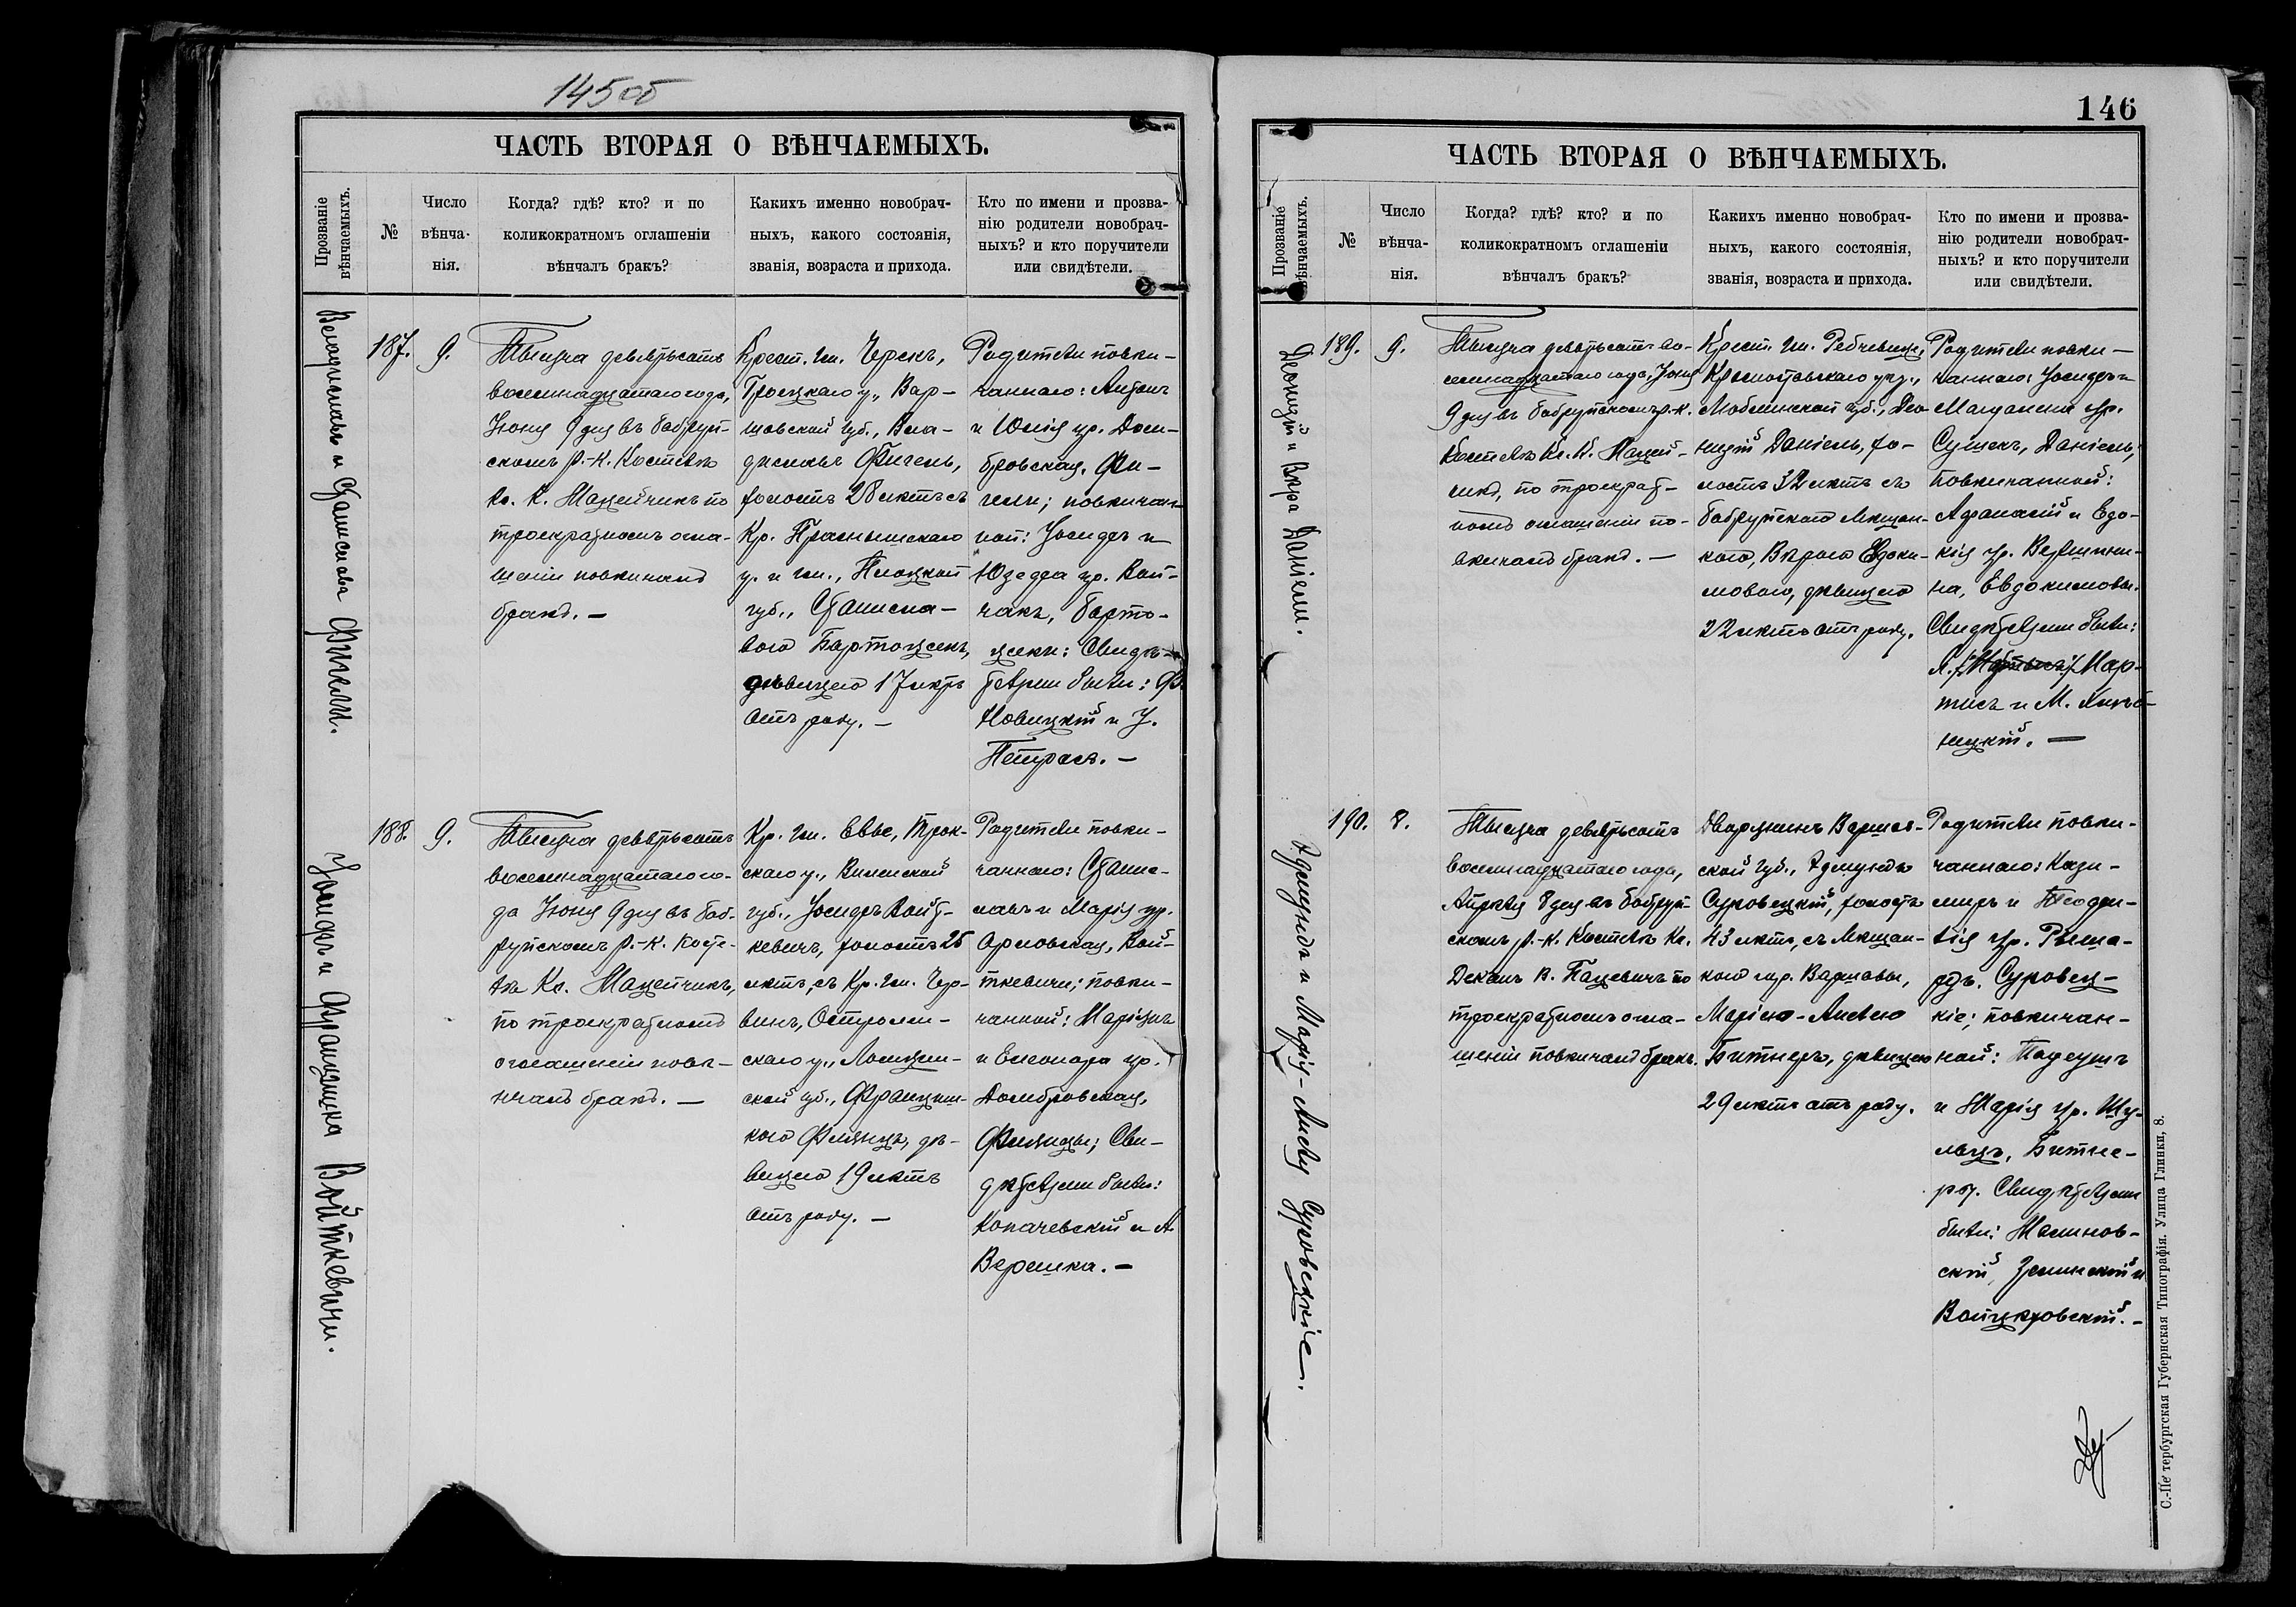 145 об
ЧАСТЬ ВТОРАЯ О ВѢНЧАЕМЫХЪ.
Прозваніе
вѣнчаемыхъ.
№
Число
вѣнча-
нія.
Когда? гдѣ? кто? и по
коликократномъ оглашеніи
вѣнчалъ бракъ?
Какихъ именно новобрач-
ныхъ, какого состоянія,
званія, возраста и прихода.
Кто по имени и прозва-
нію родители новобрач-
ныхъ? и кто поручители
или свидѣтели.
Владиславъ и Станислава Фигели.
187.
9.
Тысяча девятьсотъ
восемнадцатаго года,
Іюня 9 дня въ Бобруй-
скомъ р.-к. Костелѣ
Кс. К. Мацейчикъ по
троекратномъ огла-
шеніи повѣнчалъ
бракъ. —
Крест. гм. Черскъ,
Гроецкаго у., Вар-
шавской губ., Вла-
диславъ Фигель,
холостъ 28 лѣтъ съ
Кр. Праснышскаго
у. и гм., Плоцкой
губ., Станисла-
вою Бартошекъ,
дѣвицею 17 лѣтъ
отъ роду. —
Родители повѣн-
чаннаго: Антонъ
и Юлія ур. Дом-
бровская, Фи-
гели; повѣнчан-
ной: Іосифъ и
Юзефа ур. Вой-
чакъ, Барто-
шеки: Свидѣ-
тели были: Ф.
Новицкій и І.
Петрась. —
Іосифъ и Францишка Войткевичи.
188.
9.
Тысяча девятьсотъ
восемнадцатаго го-
да Іюня 9 дня въ Боб-
руйскомъ р.-к. Косте-
лѣ Кс. Мацейчикъ,
по троекратномъ
оглашеніи повѣ-
нчалъ бракъ. —
Кр. гм. Евье, Трок-
скаго у., Виленской
губ., Іосифъ Войт-
кевичъ, холостъ 25
лѣтъ, съ Кр. гм. Чер-
винъ, Остролен-
скаго у., Ломжин-
ской губ., Францишкою
дѣ-
вицею 19 лѣтъ
отъ роду. —
Родители повѣн-
чаннаго: Станис-
лавъ и Марія ур.
Орловская, Вой-
ткевичи; повѣн-
чанной: Маріанъ
и Елеонора ур.
Домбровская,
Сви-
дѣтели были:
Копачевскій и А.
Верешка. —
146
ЧАСТЬ ВТОРАЯ О ВѢНЧАЕМЫХЪ.
Прозваніе
вѣнчаемыхъ.
№
Число
вѣнча-
нія.
Когда? гдѣ? кто? и по
коликократномъ оглашеніи
вѣнчалъ бракъ?
Какихъ именно новобрач-
ныхъ, какого состоянія,
званія, возраста и прихода.
Кто по имени и прозва-
нію родители новобрач-
ныхъ? и кто поручители
или свидѣтели.
Деонизій и Вѣра Даніели.
189.
9.
Тысяча девятьсотъ во-
семнадцатаго года, Іюня
9 дня въ Бобруйскомъ р.-к.
Костелѣ Кс. К. Мацей-
чикъ, по троекрат-
номъ оглашеніи по-
вѣнчалъ бракъ. —
Крест. гм.
Красноставскаго уѣз.,
Люблинской губ., Део-
низій Даніель, хо-
лостъ 32 лѣтъ съ
Бобруйскою мѣщан-
кою, Вѣрою Евдоки-
мовою, дѣвицею
22 лѣтъ отъ роду.
Родители повѣн-
чаннаго: Іосифъ и
Магдалена ур.
Сушекъ, Даніель;
повѣнчанной:
Афанасій и Евдо-
кія ур.
Евдокимовы.
Свидѣтели были:
Мар-
тисъ и М.
ницкій. —
Эдмундъ и Марія-Анеля Суровецкіе.
190.
8.
Тысяча девятьсотъ
восемнадцатаго года,
Апрѣля 8 дня въ Бобруй-
скомъ р.-к. Костелѣ Кс.
Деканъ В. Пацевичъ по
троекратномъ огла-
шеніи повѣнчалъ бракъ.
Дворянинъ Варшав-
ской губ., Эдмундъ
Суровецкій, холостъ
43 лѣтъ, съ мѣщан-
кою гор. Варшавы,
Маріею-Анелею
Битнеръ, дѣвицею
29 лѣтъ отъ роду.
Родители повѣн-
чаннаго: Кази-
миръ и Теофи-
лія ур. Рыша-
рдъ, Суровец-
кіе; повѣнчан-
ной: Тадеушъ
и Марія ур. Шу-
льцъ, Битне-
ры. Свидѣтели
были: Малинов-
скій, Зелинскій и
Войцѣховскій. —
С.-Петербургская Губернская Типографія. Улица Глинки, 8.